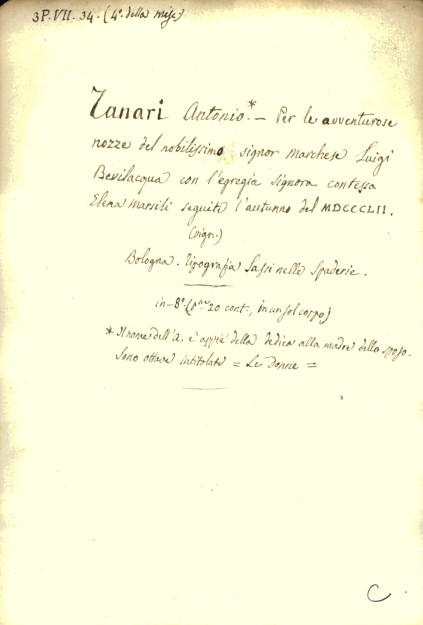 3P.VII.34.(4ª della misc)
Zanari Antonio.* — Per le avventurose
nozze del nobilissimo signor marchese Luigi
Bevilacqua con l'egregia signora contessa
Elena Marsili seguite l'autunno del MDCCCLII.
(vign.)
Bologna. Tipografia Sassi nelle Spaderie.
in-8º. (pne 20 cont., in un sol corpo)
* Il nome dell'A. è appiè della dedica alla madre dello sposo.
Sono ottave intitolate = Le Donne =
C